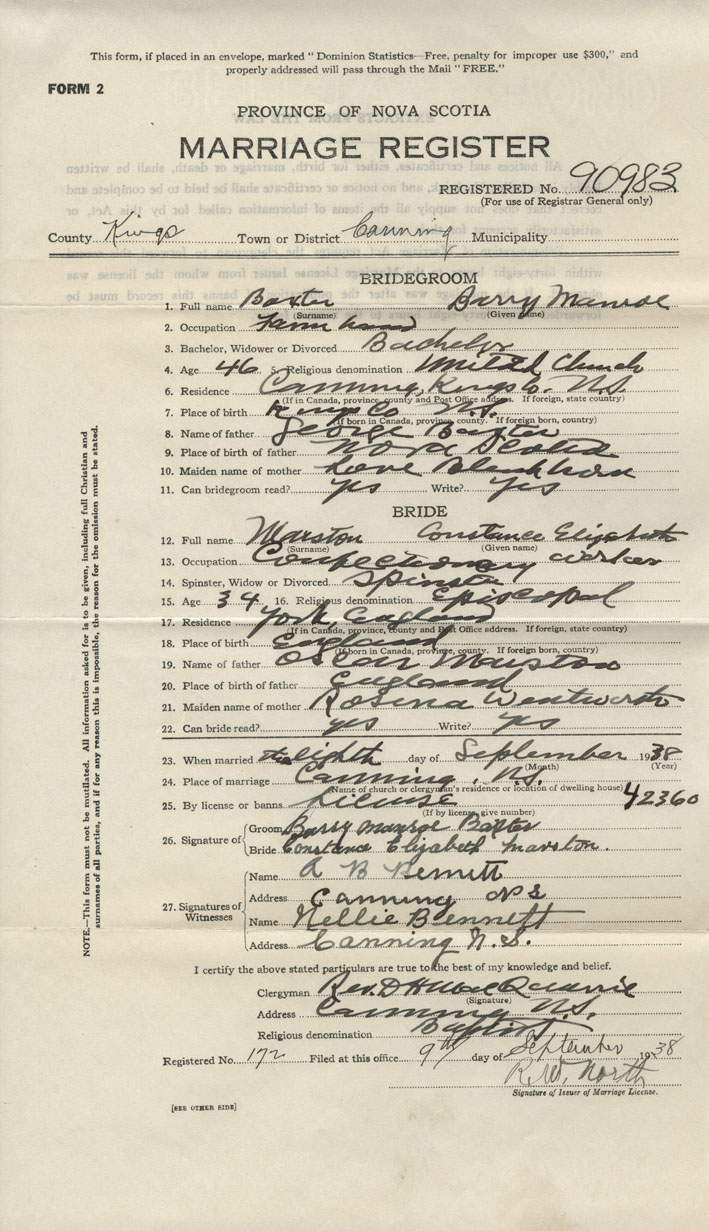 This form, if placed in an envelope, marked "Dominion Statistics—Free, penalty for improper use $300," and
properly addressed will pass through the Mail "FREE."
FORM 2
PROVINCE OF NOVA SCOTIA
MARRIAGE REGISTER
REGISTERED No. 90983
(For use of Registrar General only)
County Kings Town or District Canning Municipality
BRIDEGROOM
1. Full name Baxter Barry Manroe
(Surname) (Given name)
2. Occupation Farm hand
3. Bachelor, Widower or Divorced Bachelor
4. Age 46 5. Religious denomination United Church
6. Residence Canning, Kings Co. N.S.
(If in Canada, province, county and Post Office address. If foreign, state country)
7. Place of birth Kings Co N.S.
(If born in Canada, province, county. If foreign born, country)
8. Name of father George Baxter
9. Place of birth of father Nova Scotia
10. Maiden name of mother
11. Can bridegroom read? yes Write? yes
BRIDE
12. Full name Marston Constance Elizabeth
(Surname) (Given name)
13. Occupation Confectionary worker
14. Spinster, Widow or Divorced Spinster
15. Age 34 16. Religious denomination Episcopal
17. Residence York, England
(If in Canada, province, county and Post Office address. If foreign, state country)
18. Place of birth England
(If born in Canada, province, county. If foreign born, country)
19. Name of father Oscar Marston
20. Place of birth of father England
21. Maiden name of mother Rosina Wentworth
22. Can bride read? yes Write? yes
23. When married the eighth day of September 1938
(Month) (Year)
24. Place of marriage Canning, N.S.
(Name of church or clergyman's residence or location of dwelling house)
25. By license or banns License 42360
(If by license, give number)
26. Signature of Groom Barry Manroe Baxter
Bride Constance Elizabeth Marston.
27. Signatures of Witnesses
Name A B Bennett
Address Canning N S
Name Nellie Bennett
Address Canning N.S.
I certify the above stated particulars are true to the best of my knowledge and belief.
Clergyman Rev. D H MacQuarrie
(Signature)
Address Canning N.S.
Religious denomination Baptist
Registered No. 172 Filed at this office 9th day of September 1938
R.W. North
Signature of Issuer of Marriage License.
[SEE OTHER SIDE]
NOTE.—This form must not be mutilated. All information asked for is to be given, including full Christian and
surnames of all parties, and if for any reason this is impossible, the reason for the omission must be stated.